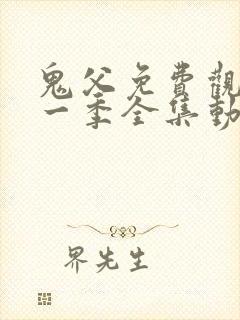 鬼父免費觀
一季全集動
界先生